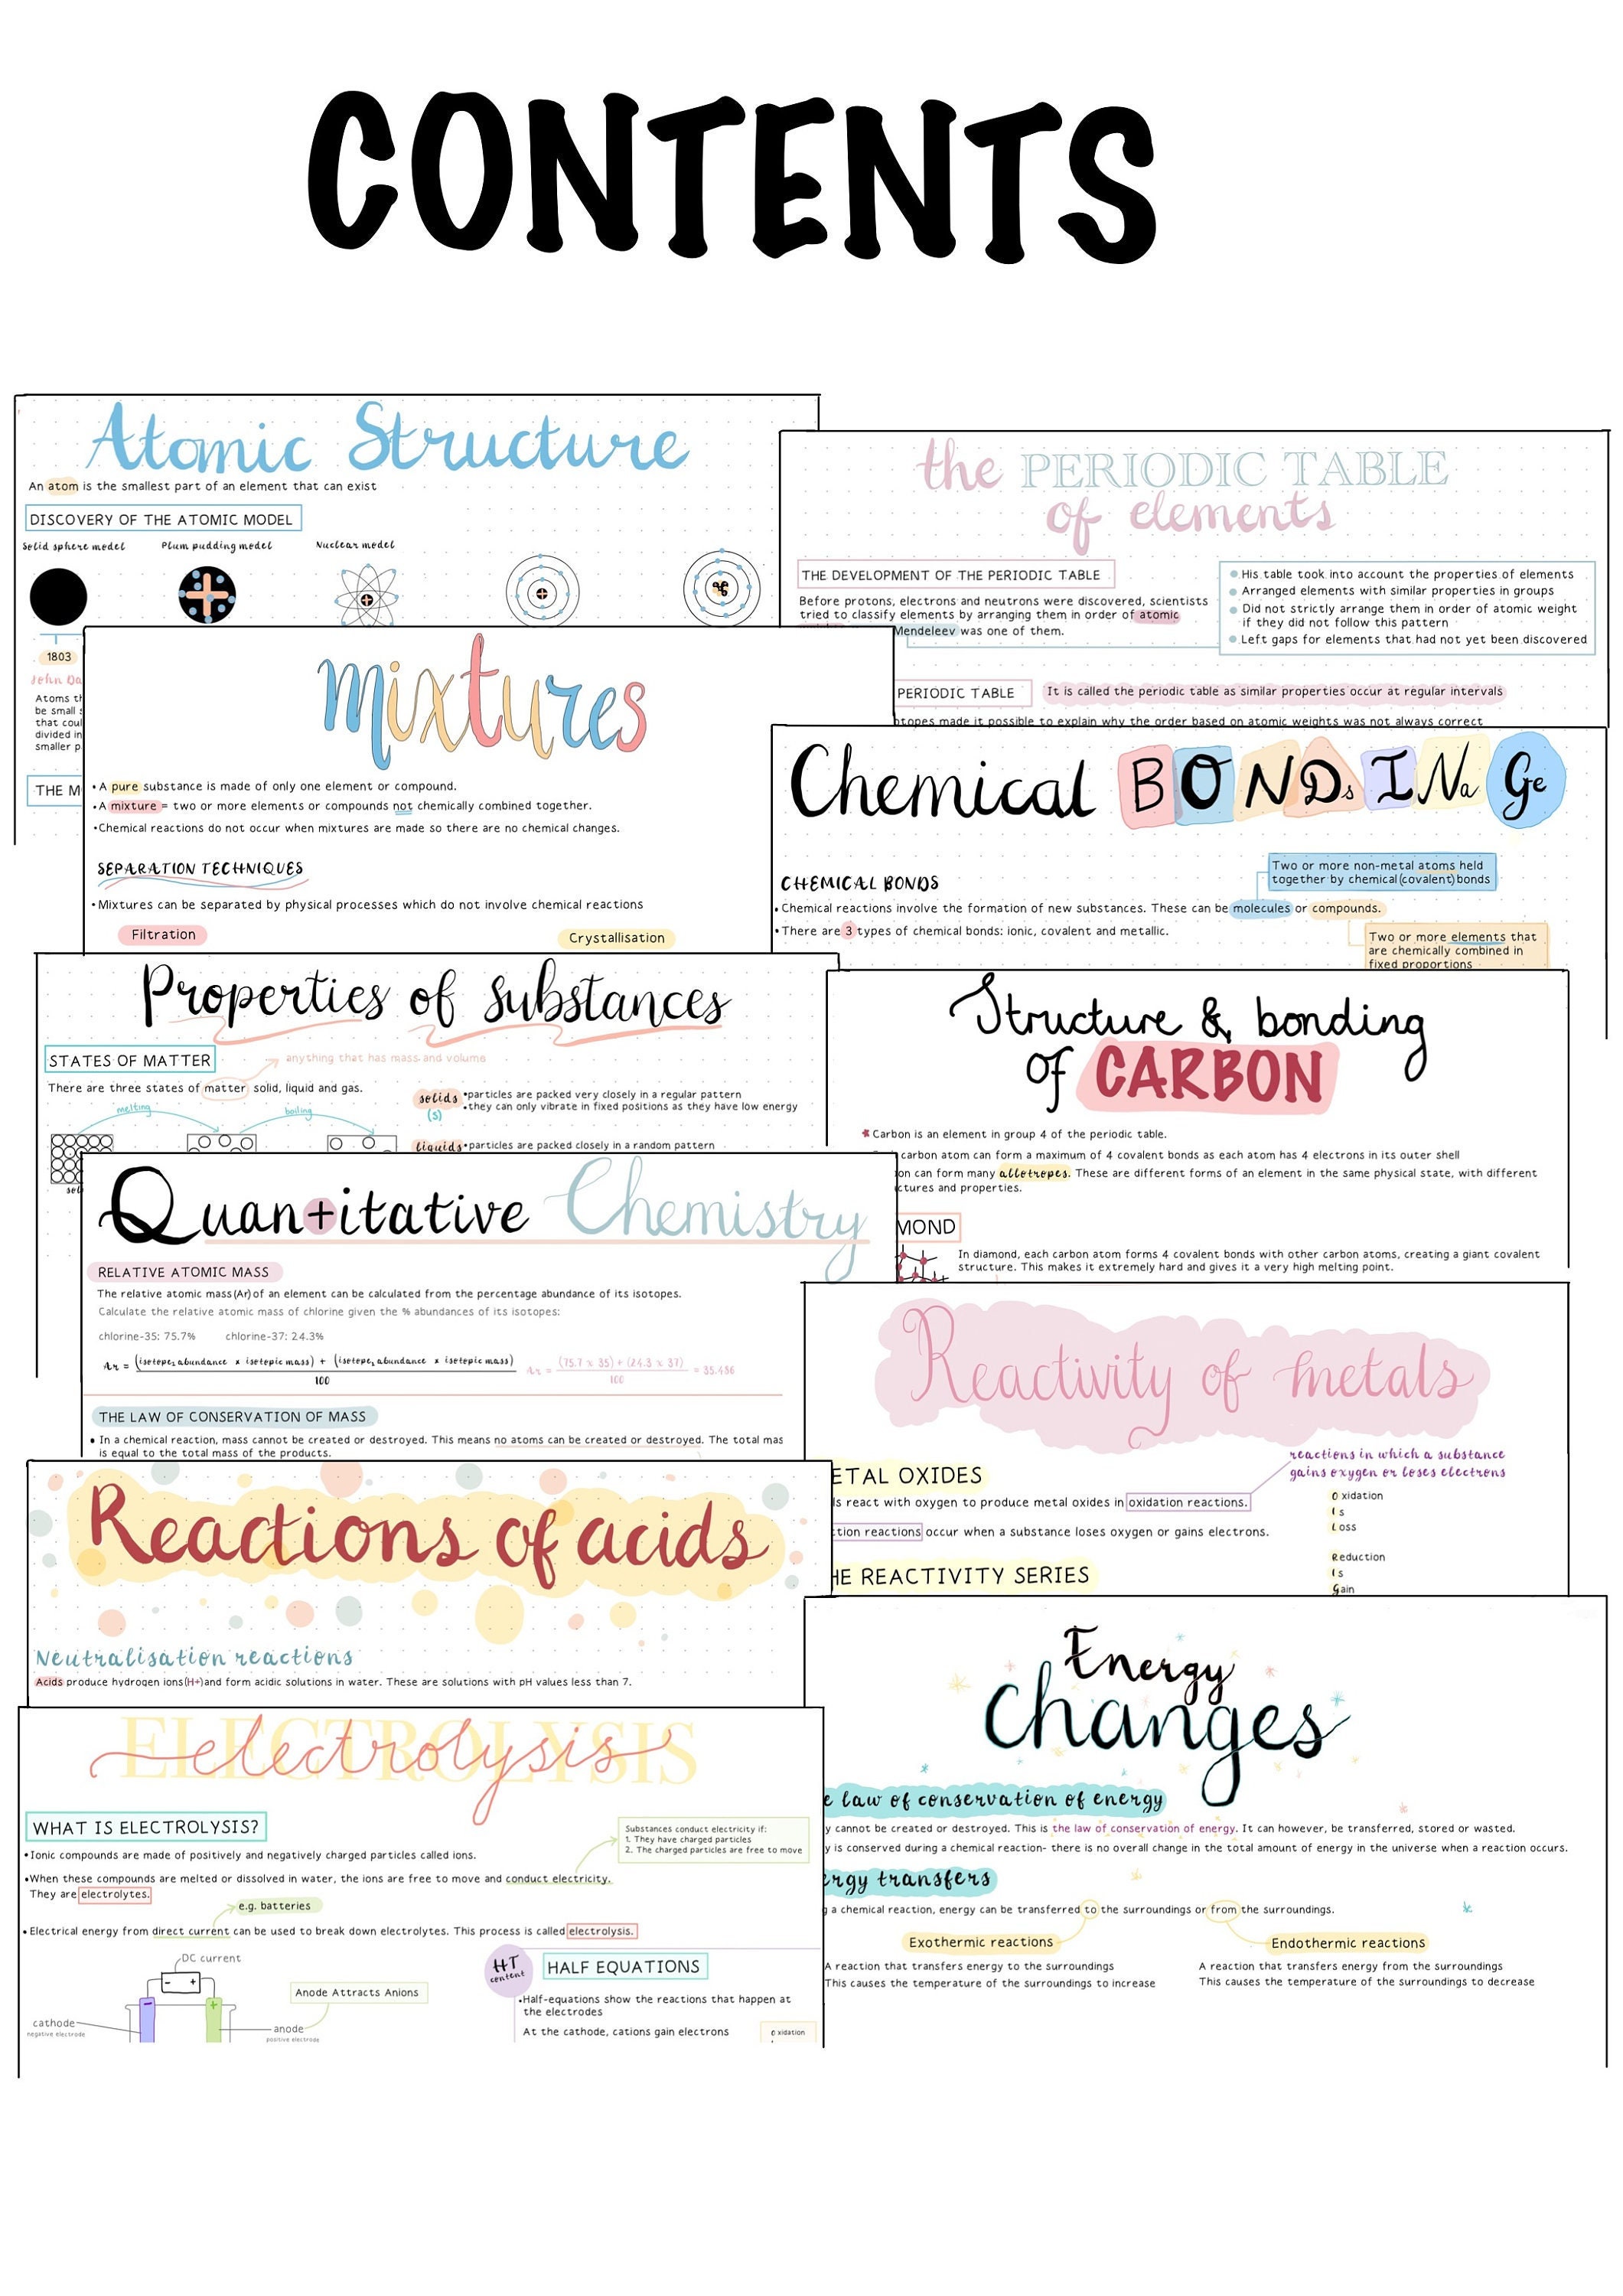 CONTENTS
Atomic Structure
An atom is the smallest part of an element that can exist
DISCOVERY OF THE ATOMIC MODEL
Solid sphere model
Plum pudding model
Nuclear model
1803
John Da
Atoms th
be small s
that coul
divided in
smaller p
THE M
the PERIODIC TABLE
of elements
THE DEVELOPMENT OF THE PERIODIC TABLE
Before protons, electrons and neutrons were discovered, scientists
tried to classify elements by arranging them in order of atomic
Mendeleev was one of them.
His table took into account the properties of elements
Arranged elements with similar properties in groups
Did not strictly arrange them in order of atomic weight
if they did not follow this pattern
Left gaps for elements that had not yet been discovered
PERIODIC TABLE
It is called the periodic table as similar properties occur at regular intervals
otopes made it possible to explain why the order based on atomic weights was not always correct
mixtures
• A pure substance is made of only one element or compound.
• A mixture = two or more elements or compounds not chemically combined together.
• Chemical reactions do not occur when mixtures are made so there are no chemical changes.
SEPARATION TECHNIQUES
• Mixtures can be separated by physical processes which do not involve chemical reactions
Filtration
Crystallisation
Chemical BONDsINaGe
Two or more non-metal atoms held
together by chemical (covalent) bonds
CHEMICAL BONDS
• Chemical reactions involve the formation of new substances. These can be molecules or compounds.
• There are 3 types of chemical bonds: ionic, covalent and metallic.
Two or more elements that
are chemically combined in
fixed proportions
Properties of substances
STATES OF MATTER
anything that has mass and volume
There are three states of matter solid, liquid and gas.
melting
boiling
sol
solids
(s)
• particles are packed very closely in a regular pattern
• they can only vibrate in fixed positions as they have low energy
liquids • particles are packed closely in a random pattern
Structure & bonding
of CARBON
Carbon is an element in group 4 of the periodic table.
carbon atom can form a maximum of 4 covalent bonds as each atom has 4 electrons in its outer shell
on can form many allotropes. These are different forms of an element in the same physical state, with different
ctures and properties.
MOND
In diamond, each carbon atom forms 4 covalent bonds with other carbon atoms, creating a giant covalent
structure. This makes it extremely hard and gives it a very high melting point.
Quantitative Chemistry
RELATIVE ATOMIC MASS
The relative atomic mass (Ar) of an element can be calculated from the percentage abundance of its isotopes.
Calculate the relative atomic mass of chlorine given the % abundances of its isotopes:
chlorine-35: 75.7% chlorine-37: 24.3%
Ar = (isotope₁ abundance x isotopic mass) + (isotope₂ abundance x isotopic mass)
100
Ar = (75.7 x 35) + (24.3 x 37) = 35.486
100
THE LAW OF CONSERVATION OF MASS
• In a chemical reaction, mass cannot be created or destroyed. This means no atoms can be created or destroyed. The total mas
is equal to the total mass of the products.
Reactivity of metals
reactions in which a substance
gains oxygen or loses electrons
ETAL OXIDES
ls react with oxygen to produce metal oxides in oxidation reactions.
ction reactions occur when a substance loses oxygen or gains electrons.
Oxidation
Is
Loss
Reduction
Is
Gain
HE REACTIVITY SERIES
Reactions of acids
Neutralisation reactions
Acids produce hydrogen ions (H+) and form acidic solutions in water. These are solutions with pH values less than 7.
Energy
changes
e law of conservation of energy
y cannot be created or destroyed. This is the law of conservation of energy. It can however, be transferred, stored or wasted.
y is conserved during a chemical reaction- there is no overall change in the total amount of energy in the universe when a reaction occurs.
ergy transfers
g a chemical reaction, energy can be transferred to the surroundings or from the surroundings.
Exothermic reactions
Endothermic reactions
A reaction that transfers energy to the surroundings
This causes the temperature of the surroundings to increase
A reaction that transfers energy from the surroundings
This causes the temperature of the surroundings to decrease
ELECTROLYSIS
electrolysis
WHAT IS ELECTROLYSIS?
Substances conduct electricity if:
1. They have charged particles
2. The charged particles are free to move
• Ionic compounds are made of positively and negatively charged particles called ions.
• When these compounds are melted or dissolved in water, the ions are free to move and conduct electricity.
They are electrolytes.
e.g. batteries
• Electrical energy from direct current can be used to break down electrolytes. This process is called electrolysis.
DC current
- +
Anode Attracts Anions
cathode
negative electrode
anode
positive electrode
HT
content
HALF EQUATIONS
• Half-equations show the reactions that happen at
the electrodes
At the cathode, cations gain electrons
Oxidation